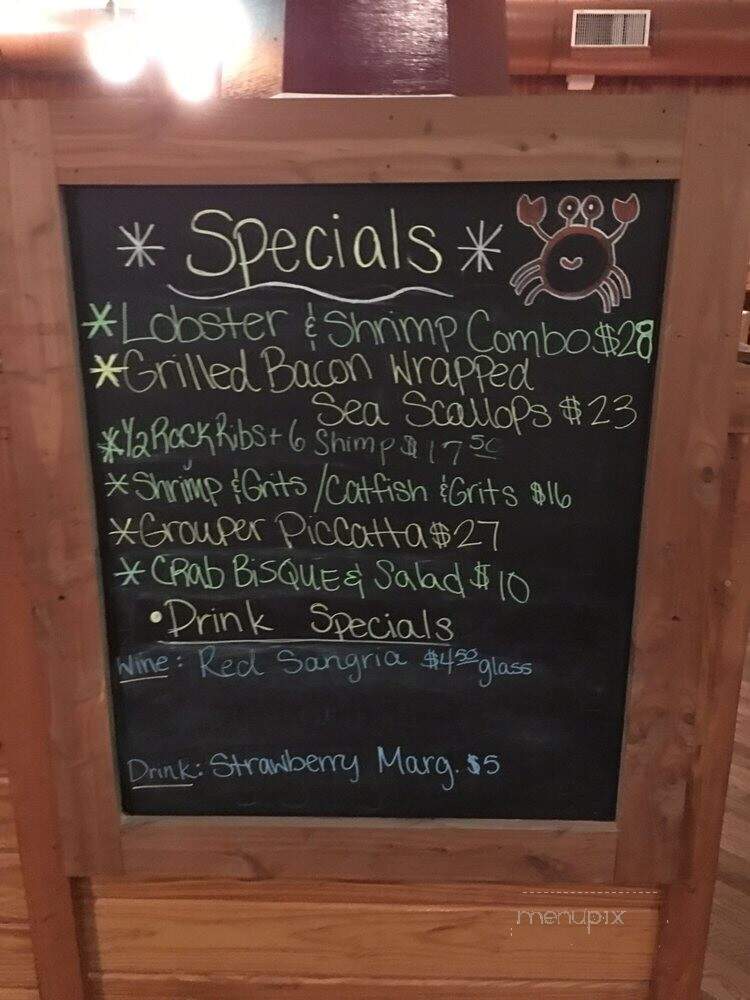 * Specials *
* Lobster & Shrimp Combo $28
* Grilled Bacon Wrapped
Sea Scallops $23
* 1/2 Rack Ribs + 6 Shimp $17 50
* Shrimp & Grits / Catfish & Grits $16
* Grouper Piccatta $27
* CRab BiSQUE & Salad $10
• Drink Specials
Wine: Red Sangria $4 50 glass
Drink: Strawberry Marg. $5
menupix